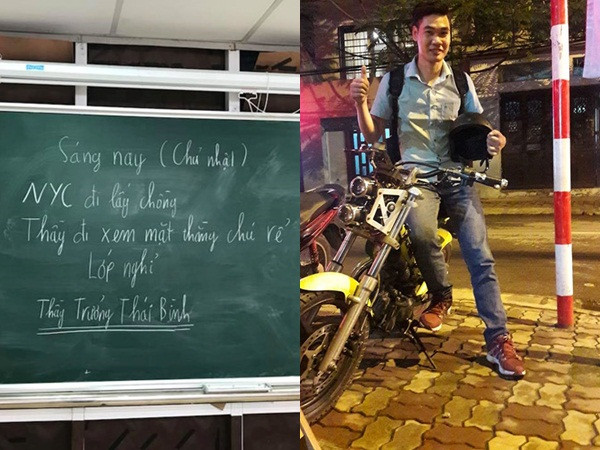 Sáng nay (Chủ nhật)
NYC đi lấy chồng
Thầy đi xem mặt thằng chú rể
Lớp nghỉ
Thầy Trương Thái Bình